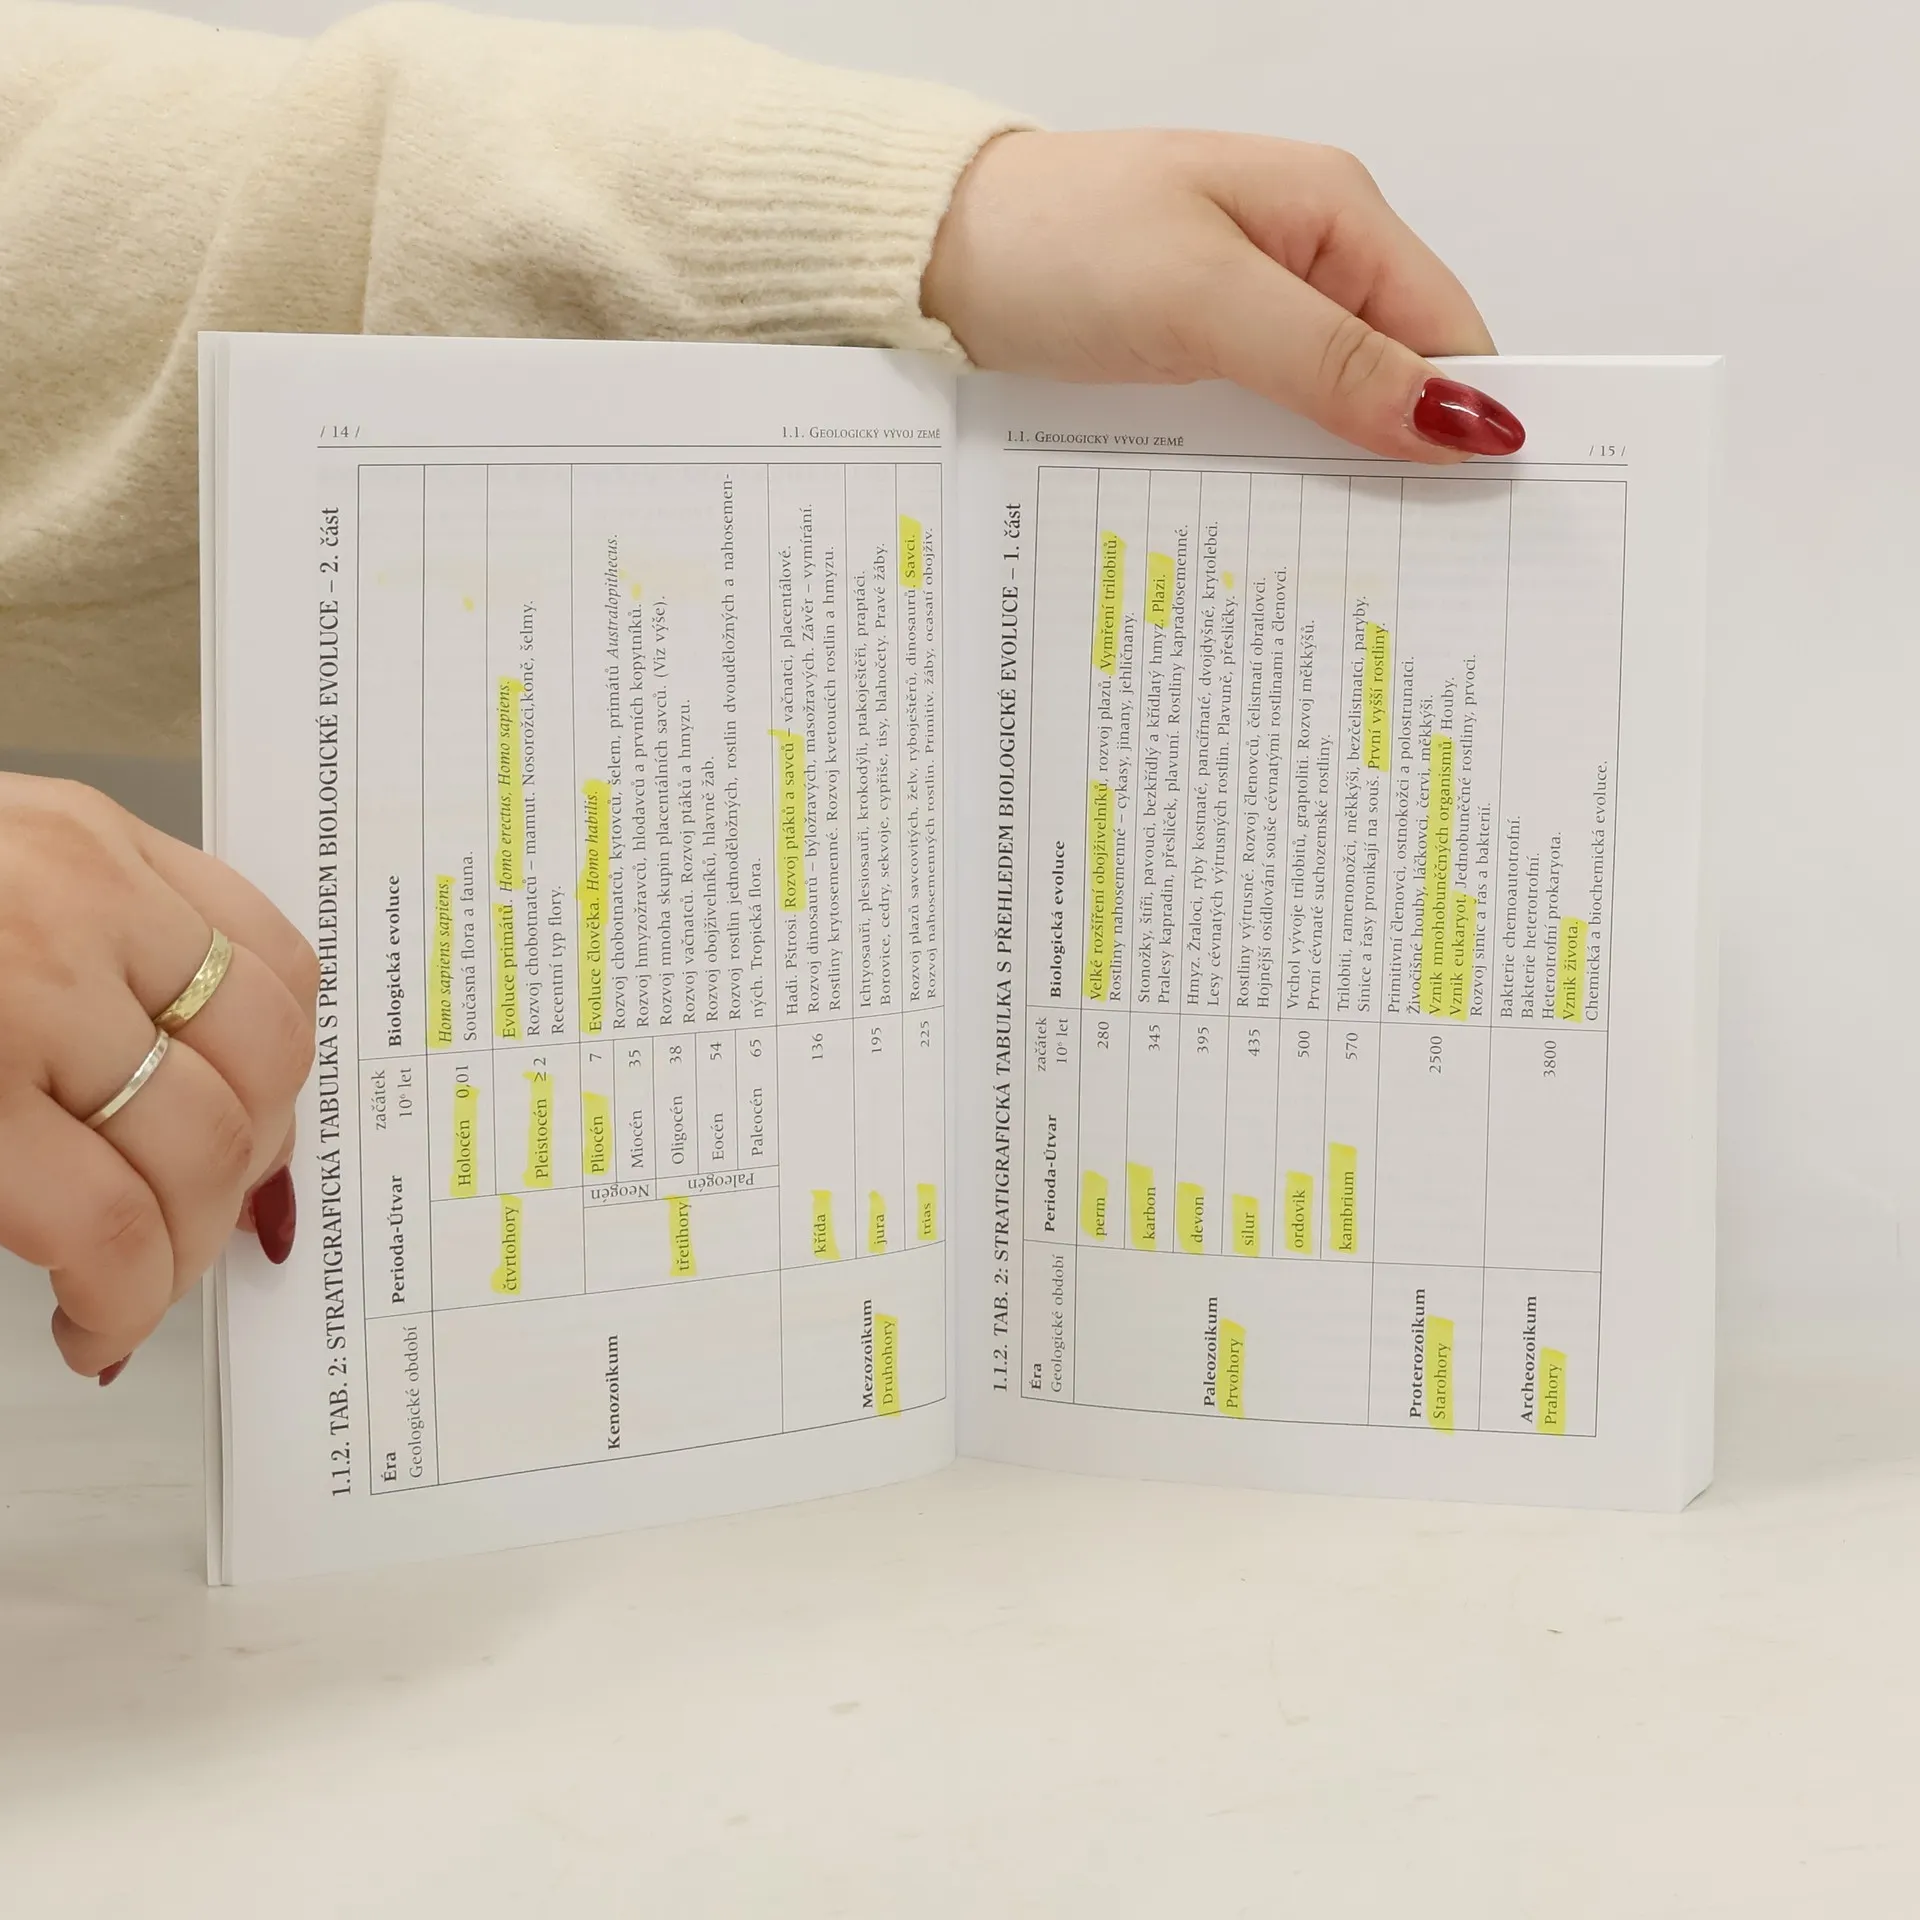 / 14 /
1.1. GEOLOGICKÝ VÝVOJ ZEMĚ
1.1.2. TAB. 2: STRATIGRAFICKÁ TABULKA S PŘEHLEDEM BIOLOGICKÉ EVOLUCE – 2. část
Éra Perioda-Útvar začátek Biologická evoluce
Geologické období 10⁶ let
Kenozoikum
čtvrtohory
Holocén 0,01
Homo sapiens sapiens.
Současná flora a fauna.
Pleistocén ≥ 2
Evoluce primátů. Homo erectus, Homo sapiens.
Rozvoj chobotnatců – mamut. Nosorožci,koně, šelmy.
Recentní typ flory.
třetihory
Neogén
Pliocén 7
Evoluce člověka. Homo habilis.
Rozvoj chobotnatců, kytovců, šelem, primátů Australopithecus.
Miocén 35
Rozvoj hmyzožravců, hlodavců a prvních kopytníků.
Paleogén
Oligocén 38
Rozvoj mnoha skupin placentálních savců. (Viz výše).
Rozvoj vačnatců. Rozvoj ptáků a hmyzu.
Eocén 54
Rozvoj obojživelníků, hlavně žab.
Rozvoj rostlin jednoděložných, rostlin dvouděložných a nahosemen-
Paleocén 65
ných. Tropická flora.
Mezozoikum
Druhohory
křída 136
Hadi. Pštrosi. Rozvoj ptáků a savců – vačnatci, placentálové.
Rozvoj dinosaurů – býložravých, masožravých. Závěr – vymírání.
Rostliny krytosemenné. Rozvoj kvetoucích rostlin a hmyzu.
jura 195
Ichtyosauři, plesiosauři, krokodýli, ptakoještěři, praptáci.
Borovice, cedry, sekvoje, cypřiše, tisy, blahočety. Pravé žáby.
trias 225
Rozvoj plazů savcovitých, želv, ryboještěrů, dinosaurů. Savci.
Rozvoj nahosemenných rostlin. Primitiv. žáby, ocasatí obojživ.
1.1. GEOLOGICKÝ VÝVOJ ZEMĚ
/ 15 /
1.1.2. TAB. 2: STRATIGRAFICKÁ TABULKA S PŘEHLEDEM BIOLOGICKÉ EVOLUCE – 1. část
Éra Perioda-Útvar začátek Biologická evoluce
Geologické období 10⁶ let
Paleozoikum
Prvohory
perm 280
Velké rozšíření obojživelníků, rozvoj plazů. Vymření trilobitů.
Rostliny nahosemenné – cykasy, jinany, jehličnany.
karbon 345
Stonožky, štíři, pavouci, bezkřídlý a křídlatý hmyz. Plazi.
Pralesy kapradin, přesliček, plavuní. Rostliny kapraďosemenné.
devon 395
Hmyz. Žraloci, ryby kostnaté, pancířnaté, dvojdyšné, krytolebci.
Lesy cévnatých výtrusných rostlin. Plavuně, přesličky.
silur 435
Rostliny výtrusné. Rozvoj členovců, čelistnatí obratlovci.
Hojnější osídlování souše cévnatými rostlinami a členovci.
ordovik 500
Vrchol vývoje trilobitů, graptoliti. Rozvoj měkkýšů.
První cévnaté suchozemské rostliny.
kambrium 570
Trilobiti, ramenonožci, měkkýši, bezčelistnatci, paryby.
Sinice a řasy pronikají na souš. První vyšší rostliny.
Proterozoikum
Starohory
2500
Primitivní členovci, ostnokožci a polostrunatci.
Živočišné houby, láčkovci, červi, měkkýši.
Vznik mnohobuněčných organismů. Houby.
Vznik eukaryot. Jednobuněčné rostliny, prvoci.
Rozvoj sinic a řas a bakterií.
Archeozoikum
Prahory
3800
Bakterie chemoautotrofní.
Bakterie heterotrofní.
Heterotrofní prokaryota.
Vznik života.
Chemická a biochemická evoluce.